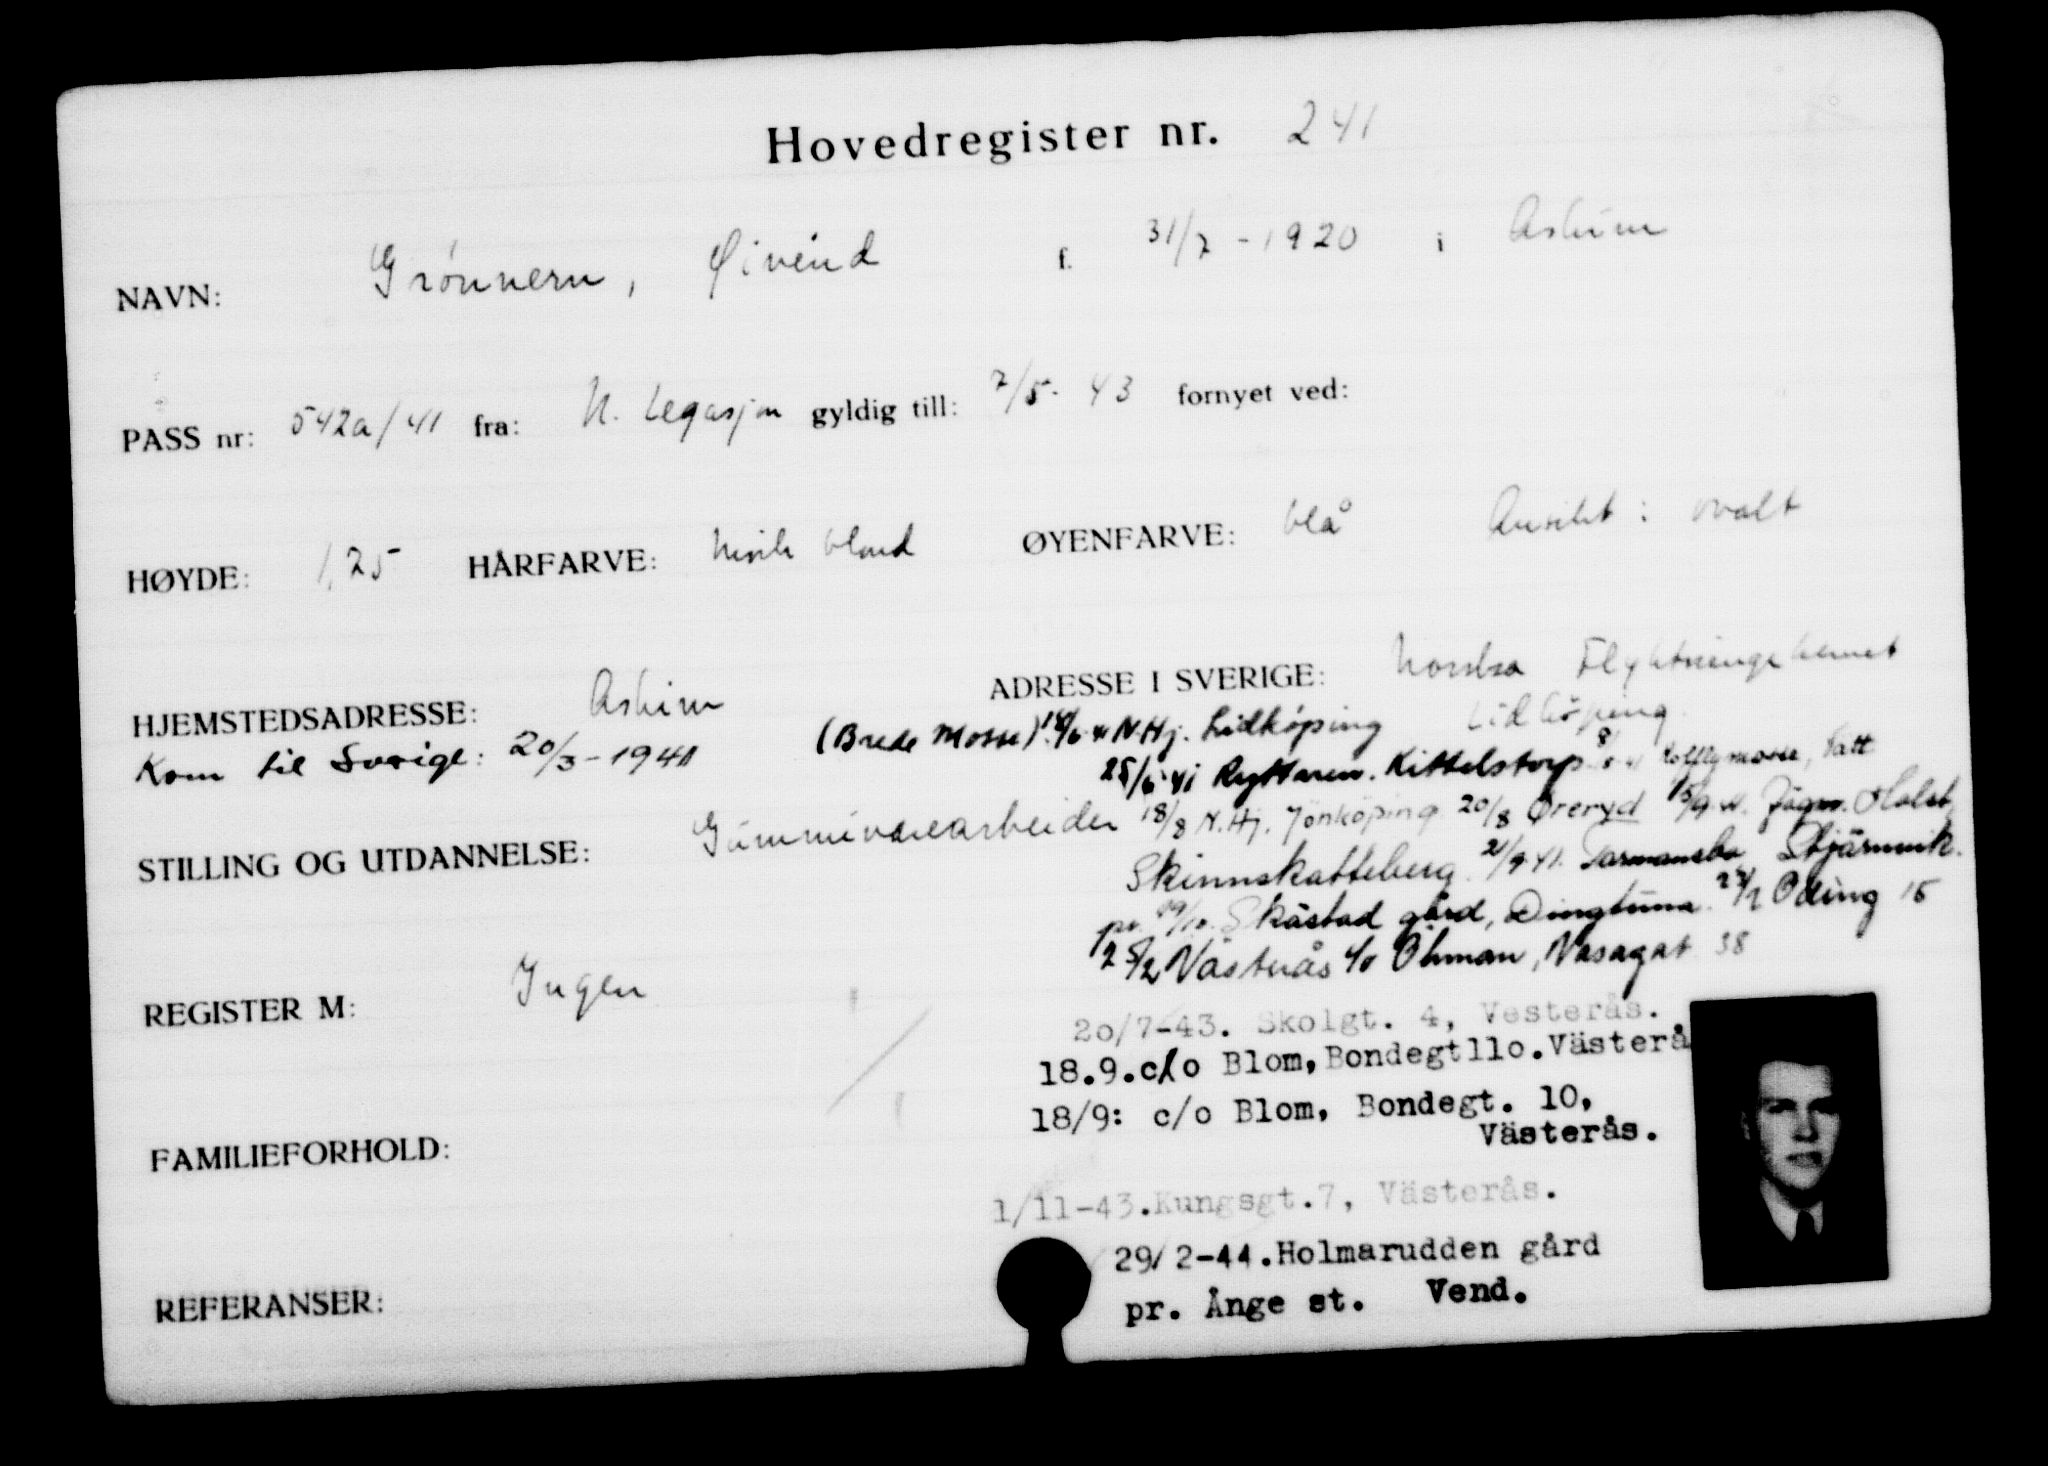 Hovedregister nr. 241
NAVN: Grönnern, Øivind f. 31/7 - 1920 i Askim
PASS nr: 542a/41 fra: N. Legasjon gyldig till: 7/5 - 43 fornyet ved:
HØYDE: 1,75 HÅRFARVE: mörk blond ØYENFARVE: blå Ansikt: ovalt
HJEMSTEDSADRESSE: Askim ADRESSE I SVERIGE: Norska Flyktningehemet
Lidköping
Kom til Sverige: 20/3 - 1941 (Brede Mosse) N.Hj. Lidköping
25/6 41 Ryttaren. Kittelstorp
STILLING OG UTDANNELSE: Gummivarearbeider 18/8 N.Hj. Jönköping 20/8 Öreryd 15/9 Holst,
Skinnskatteberg 21/9 41. Stjärnvik.
pr. Skåstad gård, Dingtuna. Oding 15
25/2 Västerås c/o Öhman, Vasagat 38
REGISTER M: Ingen
20/7-43. Skolgt. 4, Vesterås.
18.9.c/o Blom, Bondegt110.Västerå
18/9: c/o Blom, Bondegt. 10,
Västerås.
FAMILIEFORHOLD:
1/11-43.Kungsgt.7, Västerås.
29/2-44.Holmarudden gård
REFERANSER: pr. Ånge st. Vend.